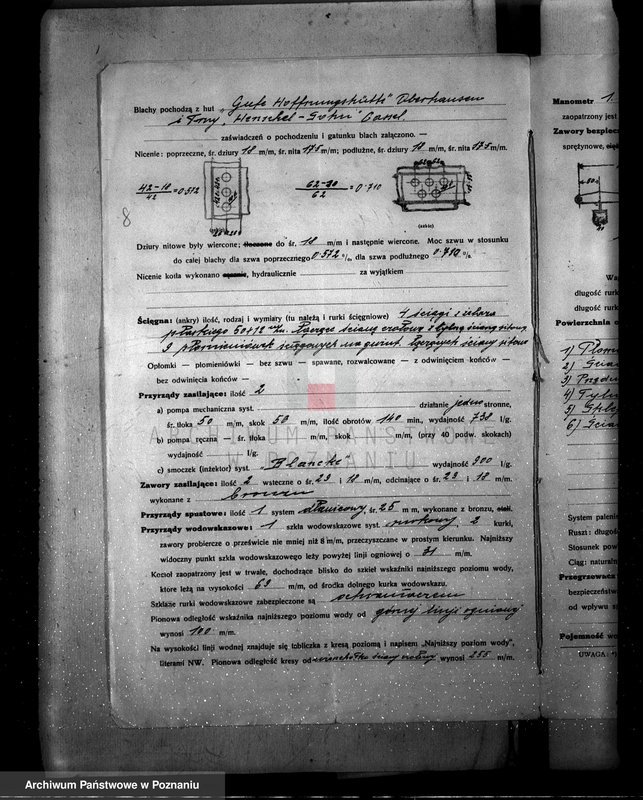 Blachy pochodzą z hut „Gute Hoffnungshütte" Oberhausen
i Firmy „Henschel-Sohn" Cassel
zaświadczeń o pochodzeniu i gatunku blach załączono. —
Nicenie: poprzeczne, śr. dziury 18 m/m, śr. nita 17,5 m/m; podłużne, śr. dziury 18 m/m, śr. nita 17,5 m/m.
42-18 / 42 = 0,572
62-20 / 62 = 0,710
8
(szkic)
Dziury nitowe były wiercone; tłoczone do śr. 18 m/m i następnie wiercone. Moc szwu w stosunku
do całej blachy dla szwa poprzecznego 0,572 %, dla szwa podłużnego 0,710 %.
Nicenie kotła wykonano ręcznie, hydraulicznie za wyjątkiem
Ścięgna: (ankry) ilość, rodzaj i wymiary (tu należą i rurki ścięgniowe) 4 ścięgi z żelaza
płaskiego 60+12 m/m. łączące ścianę czołową z tylną ścianą sitową
9 płomieniówek ścięgowych na gwint. łączących ściany sitowe
Opłomki — płomieniówki — bez szwu — spawane, rozwalcowane — z odwinięciem końców —
bez odwinięcia końców —
Przyrządy zasilające: ilość 2
a) pompa mechaniczna syst. działanie jedno stronne,
śr. tłoka 50 m/m, skok 50 m/m, ilość obrotów 140 min, wydajność 738 l/g.
b) pompa ręczna — śr. tłoka m/m, skok m/m, (przy 40 podw. skokach)
wydajność l/g.
c) smoczek (inżektor) syst. „Blancke" wydajność 900 l/g.
Zawory zasilające: ilość 2 wsteczne o śr. 23 i 18 m/m, odcinające o śr. 23 i 18 m/m.
wykonane z bronzu
Przyrządy spustowe: ilość 1 system dławicowy, śr. 25 m/m, wykonane z bronzu, stali.
Przyrządy wodowskazowe: 1 szkła wodowskazowe syst. rurkowy, 2 kurki,
zawory probiercze o prześwicie nie mniej niż 8 m/m, przeczyszczane w prostym kierunku. Najniższy
widoczny punkt szkła wodowskazowego leży powyżej linji ogniowej o 31 m/m.
Kocioł zaopatrzony jest w trwałe, dochodzące blisko do szkieł wskaźniki najniższego poziomu wody,
które leżą na wysokości 69 m/m, od środka dolnego kurka wodowskazu.
Szklane rurki wodowskazowe zabezpieczone są ochraniaczem
Pionowa odległość wskaźnika najniższego poziomu wody od górnej linji ogniowej
wynosi 100 m/m.
Na wysokości linji wodnej znajduje się tabliczka z kresą poziomą i napisem „Najniższy poziom wody",
literami NW. Pionowa odległość kresy od wierzchołka ściany czołowej wynosi 255 m/m.
Manometr 1.
zaopatrzony jest
Zawory bezpiec
sprężynowe,
długość rurk
długość rurki
Powierzchnia o
1) Płom
2) Ścia
3)
4)
5)
6) Ścia
System palen
Ruszt: długoś
Stosunek pow
Ciąg: natural
Przegrzewacz
bezpieczeństw
od wpływu s
Pojemność wo
UWAGA:
ARCHIWUM PAŃSTWOWE
W POZNANIU
Archiwum Państwowe w Poznaniu